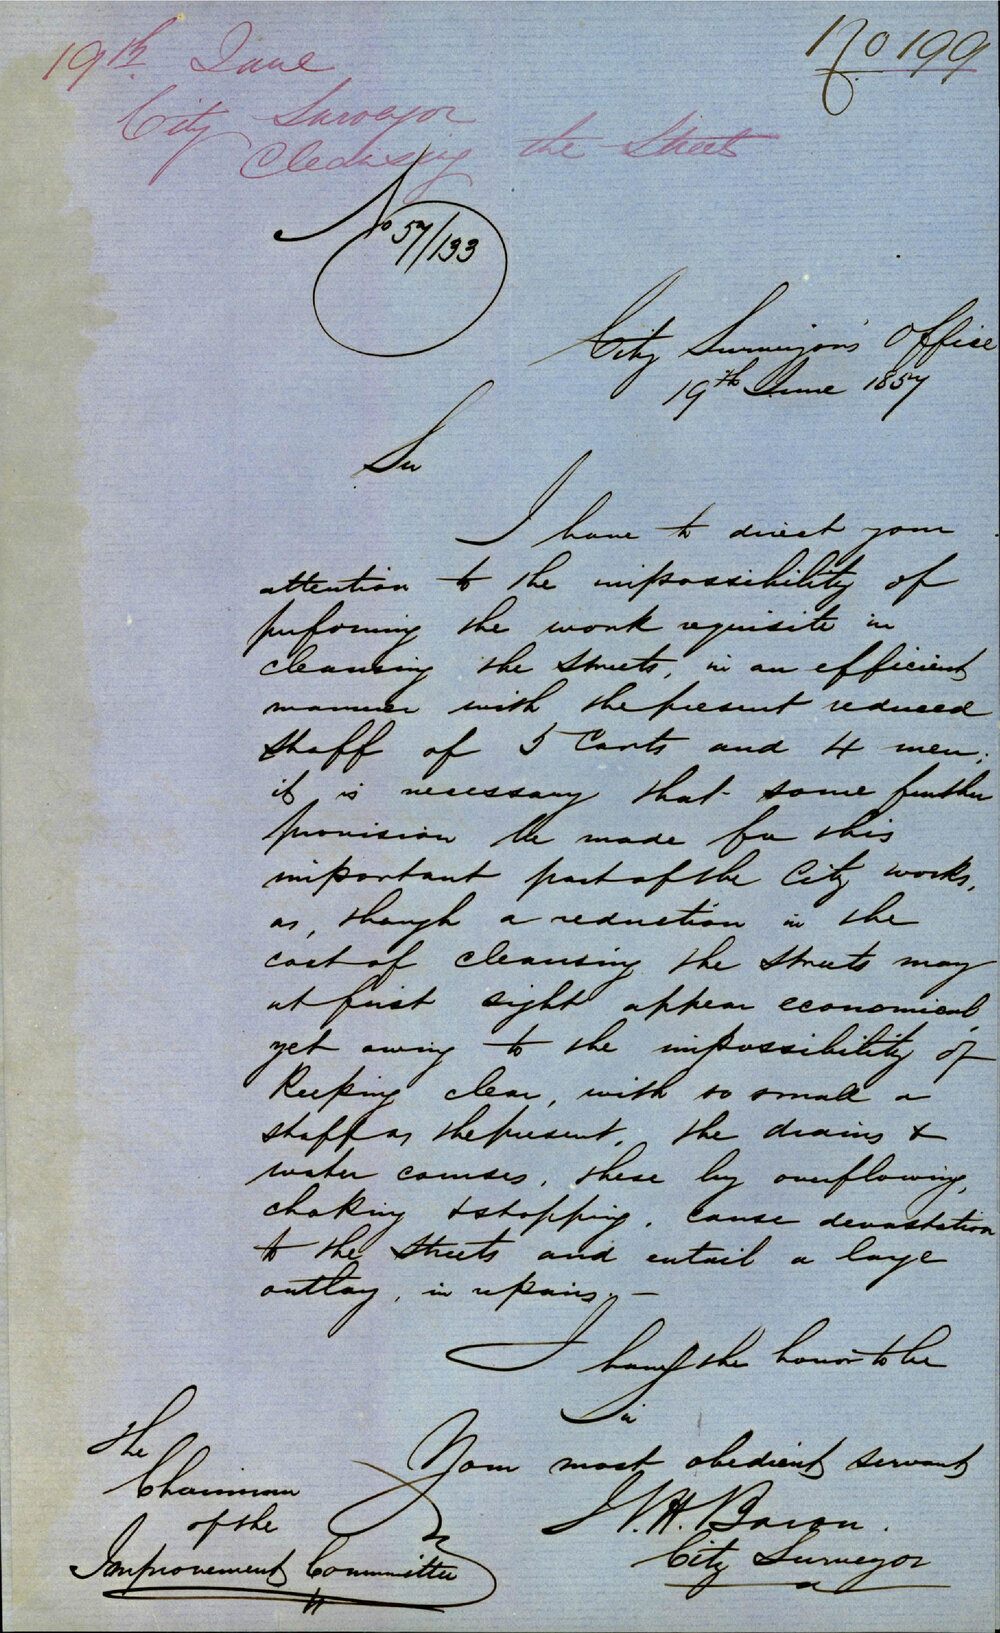 No 199
19th June
City Surveyor
Cleansing the Streets
No 57/133
City Surveyor's Office
19th June 1857
Sir
I have to direct your
attention to the impossibility of
performing the work requisite in
cleansing the Streets, in an efficient
manner with the present reduced
staff of 5 Carts and 4 men;
it is necessary that some further
provision be made for this
important part of the City works,
as, though a reduction in the
cost of cleansing the Streets may
at first sight appear economical,
yet owing to the impossibility of
Keeping clear, with so small a
staff as the present, the drains &
water courses, these by overflowing,
choking & stopping, cause devastation
to the Streets and entail a large
outlay, in repairs,—
I have the honor to be
Sir
Your most obedient servant
H. Bacon.
City Surveyor
The
Chairman
of the
Improvement Committee